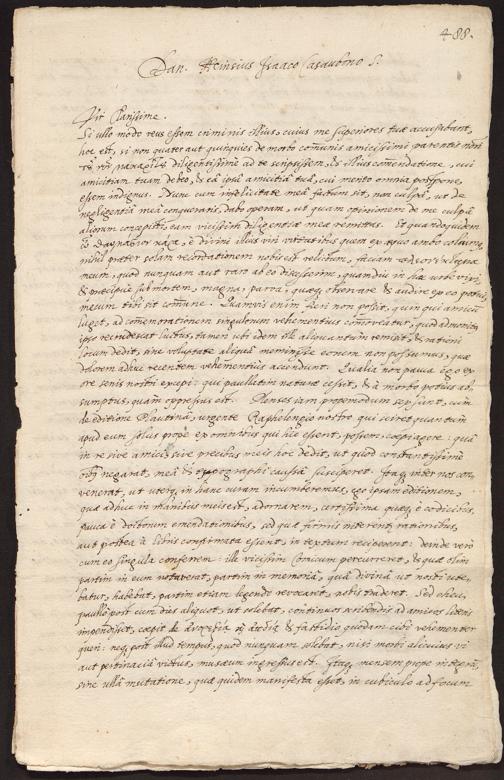 488.
Dan. Heinsius Isaaco Casaubono S.
Vir Clarissime.
Si ullo modo reus essem criminis illius, cuius me superiores tuae accusabant,
hoc est, si non quater aut quinquies de morto communis amicissimi parentis nostri
diligentissime ad te scripsissem, illius commendatione, cui
amicitiam tuam debeo, & ea ipsa amicitia tua, cui merito omnia postpono,
essem indignus. Nunc cum infelicitate mea factum sit, non culpa, ut de
negligentia mea conqueraris, dabo operam, ut quam opinionem de mea culpa
aliorum concepisti, eam vicissim diligentiae meae remittas. Et quandoquidem
& divini illius viri virtutibus quem ex aequo ambo colimus,
nihil praeter solam recordationem nobis est relictum, faciam
meum, quod nunquam aut raro ab eo discesserim, quamdiu in hac urbe vixi,
& praecipue sub mortem, magna, parva, quaeque observare & audire ex eo potui,
mecum tibi sit commune. Quamvis enim fieri non possit, quin qui amicum
luget, ad commemorationem singulorum vehementius commoveatur, quod admonitu
ipso recrudescat luctus, tamen ubi idem ille aliquantum remisit, & rationi
locum dedit, sine voluptate aliqua meminisse eorum non possumus, quae
dolorem adhuc recentem vehementius accendunt. Qualia non pauca ego ex
ore senis nostri excepi: qui paullatim naturae cessit, & a morbo potius ab-
sumptus, quam oppressus est. Menses iam propemodum sex sunt, cum
de editione Plautina, urgente Raphelengio nostro qui sciret quantum
apud eum solus prope ex omnibus qui hic essent, possem, coepi agere: qua
in re sive amici, sive precibus meis hoc dedit, ut quod constantissime
omnibus negarat, mea & typographi caussa susciperet. Itaque inter nos con-
venerat, ut uterque in hanc curam incumberemus, ego ipsam editionem,
quae adhuc in manibus meis est, adornarem, certissima quaeque e codicibus,
pauca e doctorum emendationibus, sed quae firmis niterentur rationibus,
aut postea a libris confirmata essent, in textum reciperem: deinde vero
cum eo singula conferrem: ille vicissim Comicum percurreret, & quae olim
partim in eum notaverat, partim in memoria, qua divina ut nosti ute-
batur, habebat, partim etiam legendo revocaret, nobis traderet. Sed ohe,
paullo post cum dies aliquot, ut solebat, continuos scribendis ad amicos literis
impendisset, coepit de & fastidio quodam cibi vehementer
queri: neque post illud tempus, quod nunquam solebat, nisi morbi alicuius vi
aut pertinacia victus, museum ingressus est. Itaque mensem prope integrum,
sine ulla mutatione, quae quidem manifesta esset, in cubiculo ad focum